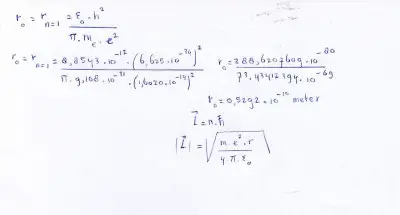 r₀ = r n=1 = ε₀ · h² / π · mₑ · e²
r₀ = r n=1 = 8,8543 · 10⁻¹² · (6,625 · 10⁻³⁴)² / π · 9,108 · 10⁻³¹ · (1,6020 · 10⁻¹⁹)²
r₀ = 388,6207609 · 10⁻⁸⁰ / 73,43412394 · 10⁻⁶⁹
r₀ = 0,5292 · 10⁻¹⁰ meter
l⃗ = n · ħ
|l⃗| = √(m · e² · r / 4 · π · ε₀)